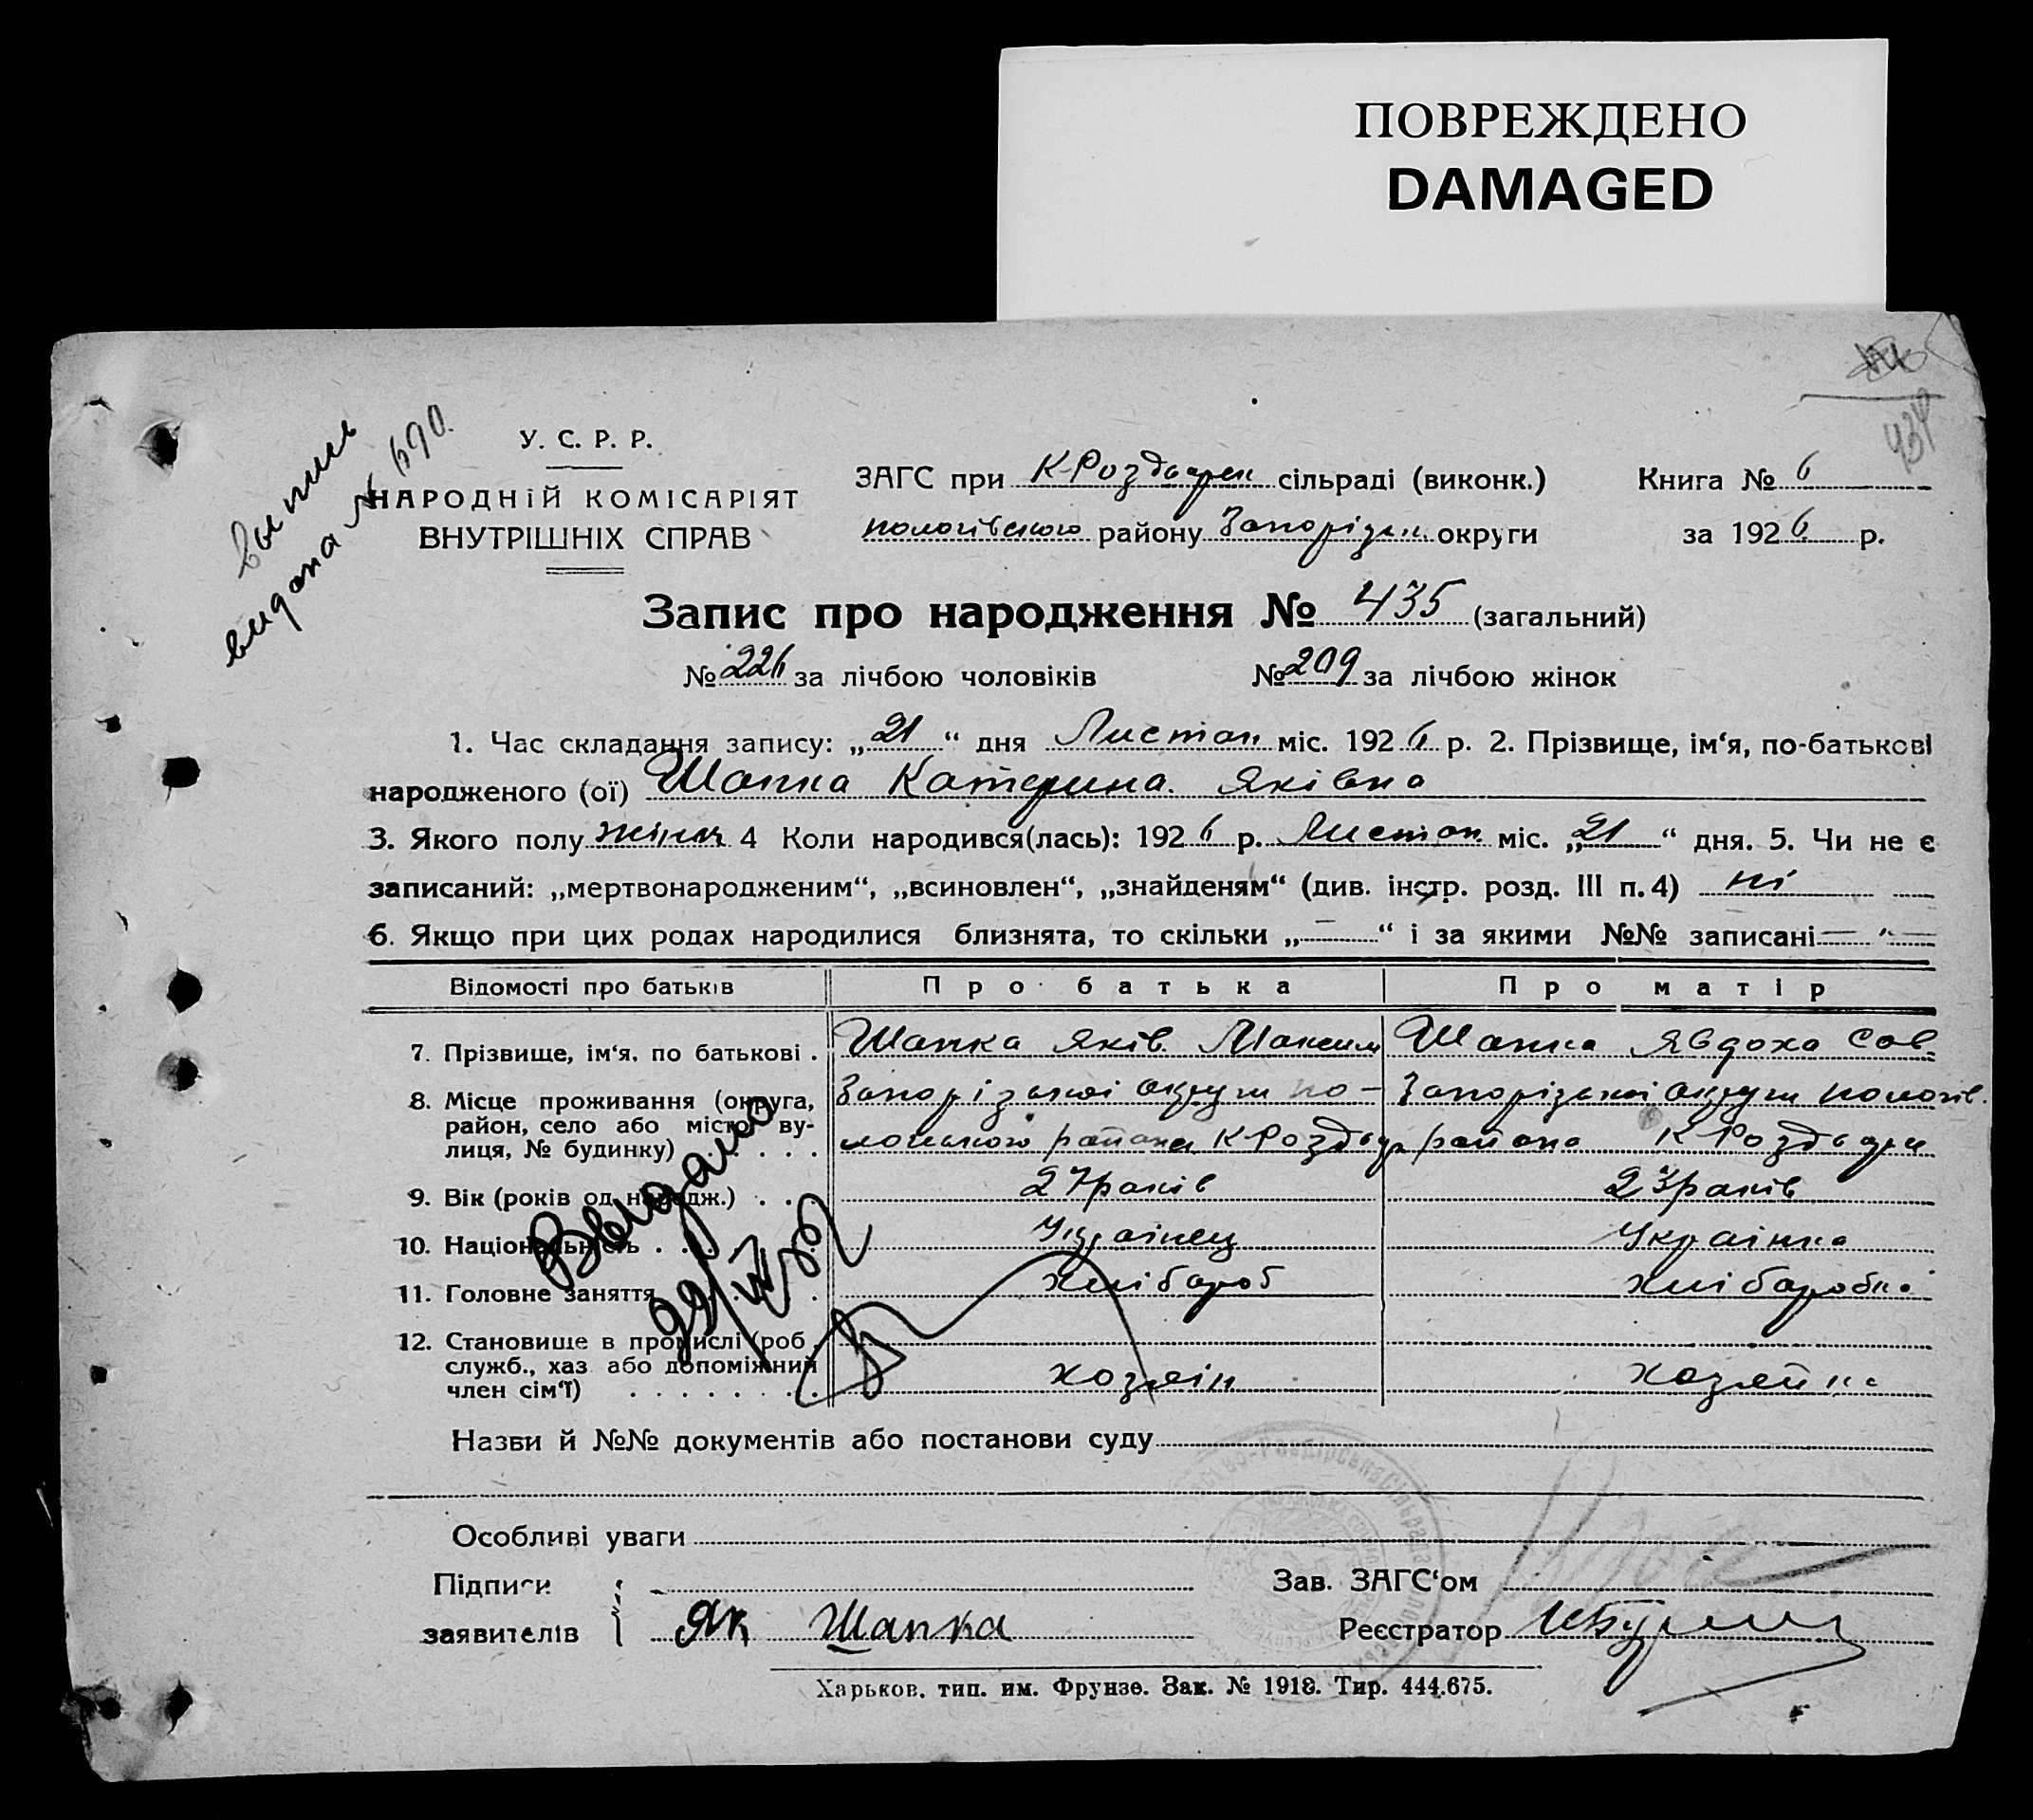 ПОВРЕЖДЕНО
DAMAGED
434
выпись
видана № 690.
У. С. Р. Р.
НАРОДНІЙ КОМІСАРІЯТ
ВНУТРІШНІХ СПРАВ
ЗАГС при К-Роздорск сільраді (виконк.) Книга № 6
пологівського району Запорізьк. округи за 1926 р.
Запис про народження № 435 (загальний)
№ 226 за лічбою чоловіків № 209 за лічбою жінок
1. Час складання запису: „21“ дня Листоп міс. 1926 р. 2. Прізвище, ім‘я, по-батькові
народженого (ої) Шапка Катерина Яківна
3. Якого полу жіноч 4 Коли народився(лась): 1926 р. Листоп міс. „21“ дня. 5. Чи не є
записаний: „мертвонародженим“, „всиновлен“, „знайденям“ (див. інстр. розд. III п. 4) ні
6. Якщо при цих родах народилися близнята, то скільки „—“ і за якими №№ записані — „ —
Відомості про батьків Про батька Про матір
7. Прізвище, ім‘я, по батькові . Шапка Яків Максим Шапка Явдоха Сав.
8. Місце проживання (округа, Запорізької округи по- Запорізької округи пологів.
район, село або місто, ву-
лиця, № будинку) . . . . . логського района К-Роздор района К-Роздори
9. Вік (років од народж.) . . . 27 років 23 років
10. Національність . . . . Українец Українка
11. Головне заняття . . . . хлібороб хліборобка
12. Становище в промислі (роб.
служб., хаз. або допоміжний
член сім‘ї) . . . . . . . . хозяін хозяйка
Видано
Назви й №№ документів або постанови суду
Особливі уваги
Підписи Зав. ЗАГС‘ом
заявителів Як Шапка Реєстратор
Харьков, тип. им. Фрунзе. Зак. № 1918. Тир. 444.675.